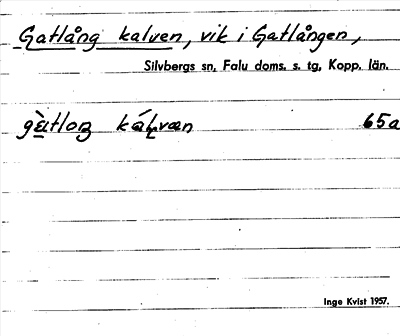 Gatlång kalven, vik i Gatlången,
Silvbergs sn, Falu doms. s. tg, Kopp. län.
65a
Inge Kvist 1957.